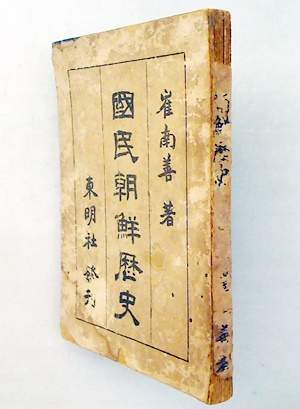 崔南善 著
國民朝鮮歷史
東明社 發刊
鮮歷史